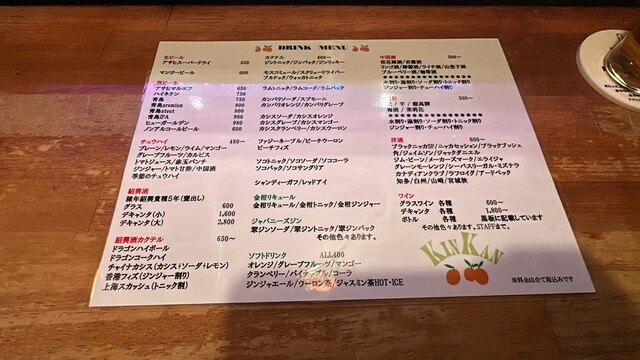 DRINK MENU
生ビール
アサヒスーパードライ 550
マンゴービール 600
瓶ビール
アサヒマルエフ 650
ハイネケン 750
青島 750
青島premium 800
青島stout 900
青島IPA 980
ヒューガルデン 980
ノンアルコールビール 600
チュウハイ 480〜
プレーン/レモン/ライム/マンゴー
グレープフルーツ/カルピス
トマトジュース/赤玉パンチ
ジンジャー/トマト甘酢/中国酒
季節のチュウハイ
紹興酒
陳年紹興貴種5年(甕出し)
グラス 600
デキャンタ(小) 1,600
デキャンタ(大) 2,800
紹興酒カクテル 650〜
ドラゴンハイボール
ドラゴンコークハイ
チャイナカシス(カシス+ソーダ+レモン)
香港フィズ(ジンジャー割り)
上海スカッシュ(トニック割)
カクテル 600〜
ジントニック/ジンバック/ジンリッキー
モスコミュール/スクリュードライバー
ブルドック/ウォッカトニック
ラムトニック/ラムコーク/ラムバック
カンパリソーダ/スプモーニ
カンパリオレンジ/カンパリグレープ
カシスソーダ/カシスオレンジ
カシスグレープ/カシスマンゴー
カシスクランベリー/カシスウーロン
ファジーネーブル/ピーチウーロン
ピーチフィズ
ソコトニック/ソコソーダ/ソココーラ
ソコバック/ソコサングリア
シャンディーガフ/レッドアイ
金柑リキュール
金柑リキュール/金柑トニック/金柑ジンジャー
ジャパニーズジン
翠ジンソーダ/翠ジントニック/翠ジンバック
その他色々あります。
ソフトドリンク ALL400
オレンジ/グレープフルーツ/マンゴー
クランベリー/パイナップル/コーラ
ジンジャエール/ウーロン茶/ジャスミン茶HOT・ICE
中国酒 500〜
桂花陳酒/杏露酒
リンゴ酒/檸檬酒/ライチ酒/山査子酒
ブルーベリー酒/
水割り・湯割り・ソーダ割り・トニック割り
ジンジャー割り・チューハイ割り
500〜
水割り・湯割り・ソーダ割・トニック割り
ジンジャー割り・チューハイ割り
洋酒 600〜
ブラックニッカ/ニッカセッション/ブラックブッシュ
角/ジェイムソン/ジャックダニエル
ジム・ビーム/メーカーズマーク/エライジャ
グリーンモーレンジ/シーバスリーガル・ミズナラ
カナディアンクラブ/ラフロイグ/アードベック
知多/白州/山崎/宮城狭
ワイン
グラスワイン 各種 600〜
デキャンタ 各種 1,800〜
ボトル 各種 黒板に記載しています
その他色々あります。STAFFまで。
KINKAN
※料金は全て税込みです